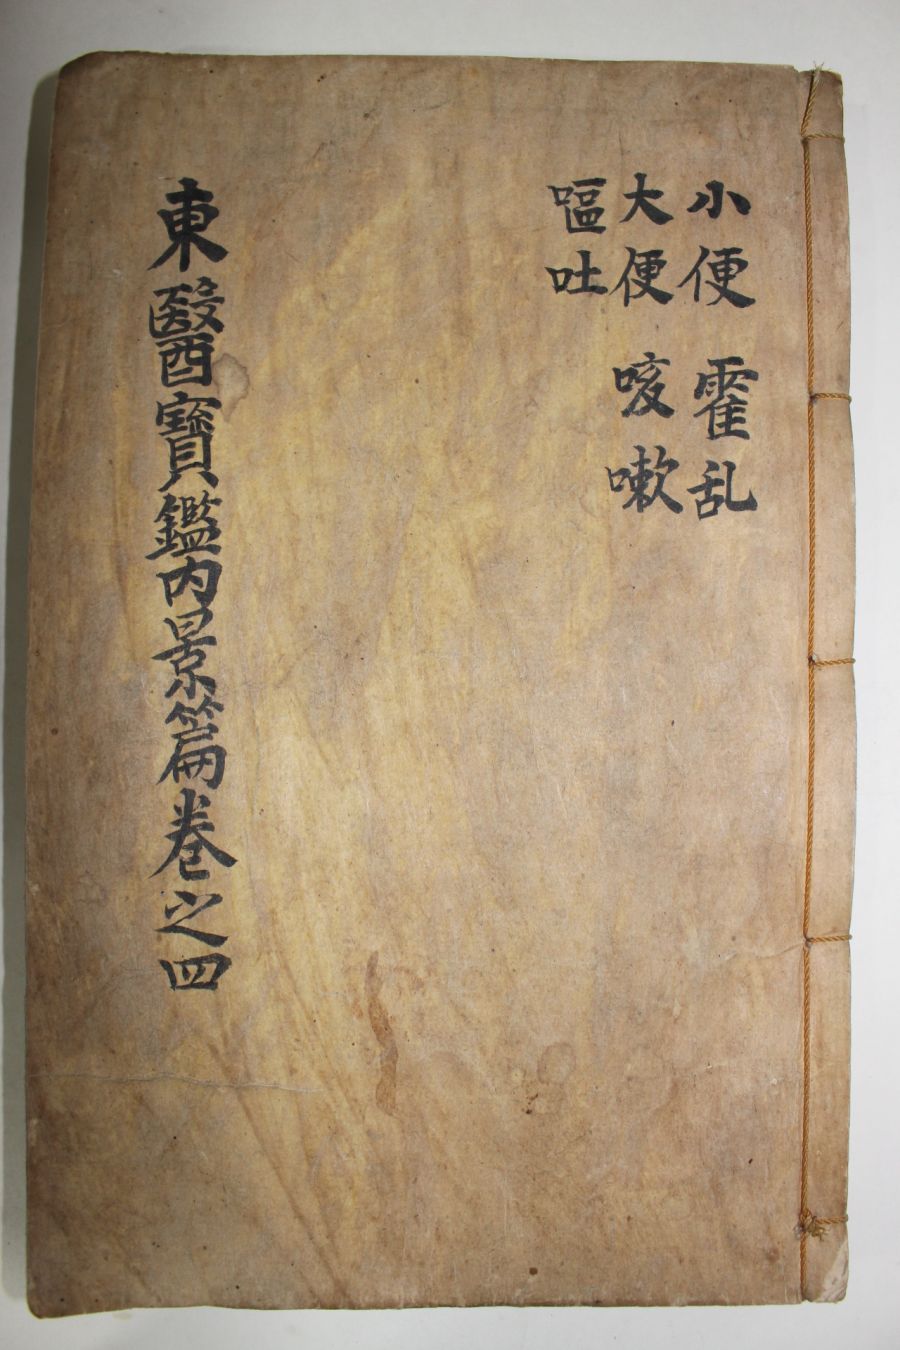 小便 霍乱
大便 咳嗽
嘔吐
東醫寶鑑内景篇卷之四